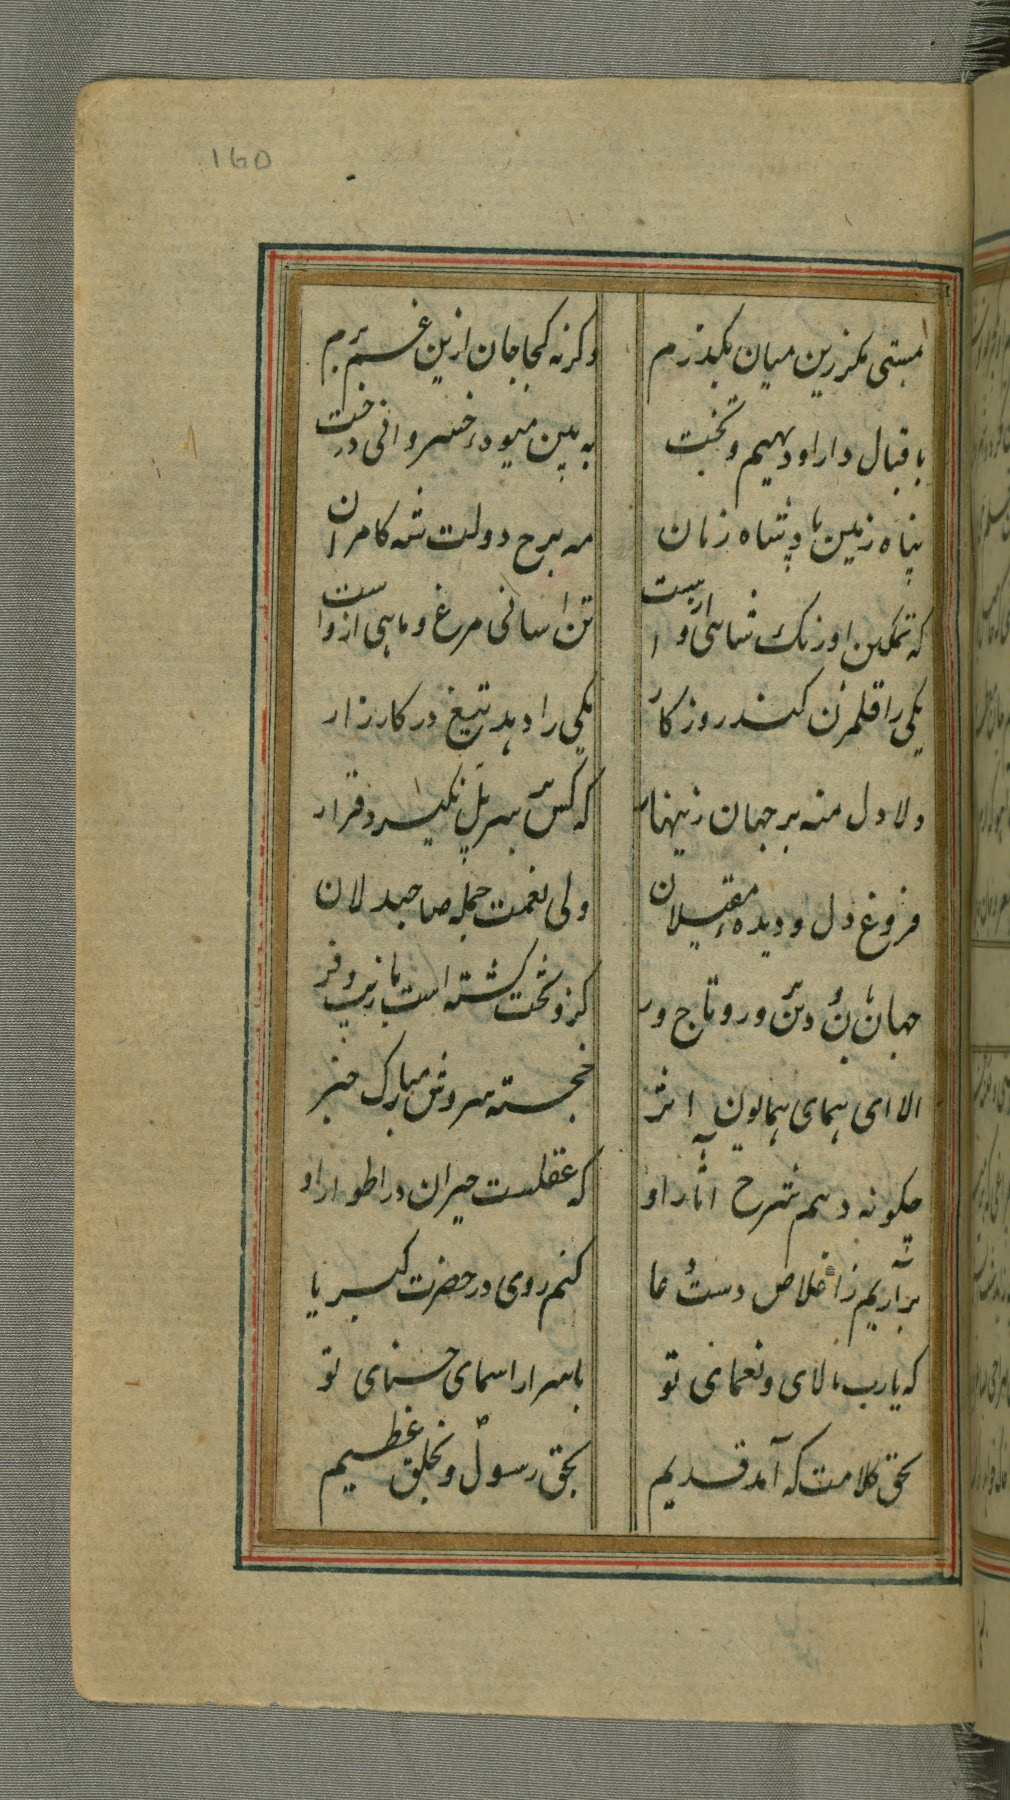 160
بمستی مکر زین میان بگذرم وکرنه کجا جان ازین غم برم
باقبال دارا و دیهیم و تخت به بین میوه خسروانی درخت
پناه زمین پادشاه زمان مه برج دولت شه کامران
که تمکین اورنک شاهی ازوست تن اسانی مرغ و ماهی ازوست
یکی را قلمزن کند روزکار یکی را دهد تیغ در کارزار
دلا دل منه بر جهان زینهار که کس بر سر پل نکیرد قرار
فروغ دل و دیده مقبلان ولی نعمت جمله صاحبدلان
جهانبان و دین پرور و تاجور کزو تخت کشته است با زیب و فر
الا ای همای همایون اثر خجسته سروش مبارک خبر
چکونه دهم شرح آثار او که عقلست حیران در اطوار او
برآریم ز اخلاص دست دعا کنم روی در حضرت کبریا
که یارب بالای و نعمای تو باسرار اسمای حسنای تو
بحق کلامت که آمد قدیم بحق رسول و بخلق عظیم